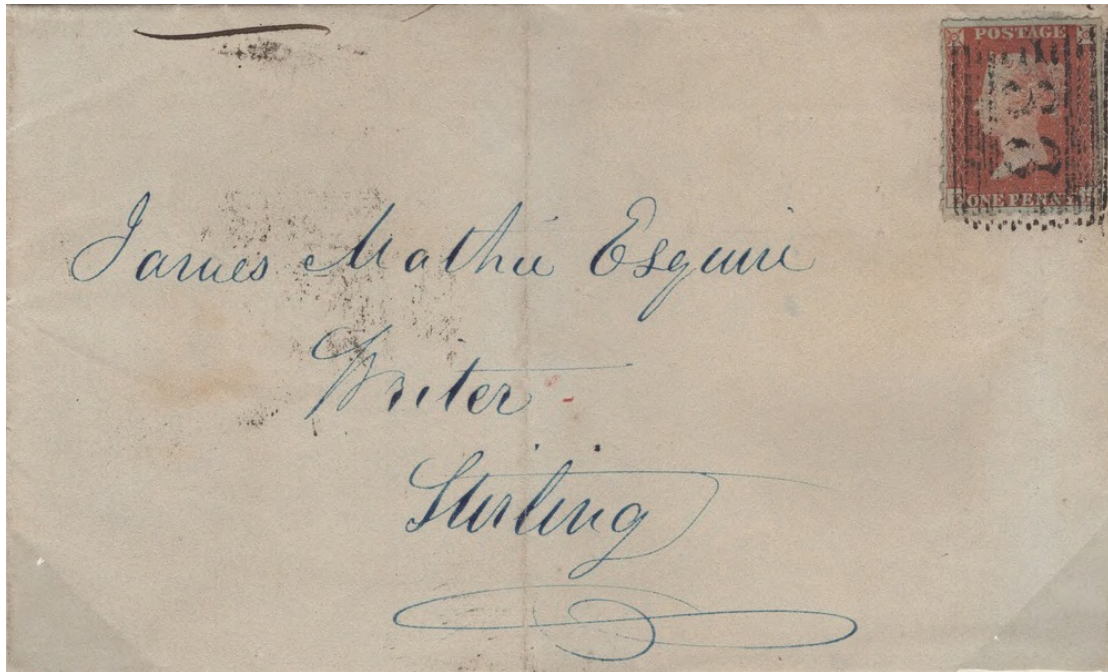 POSTAGE
ONE PENNY
James Mathie Esquire
Writer
Stirling